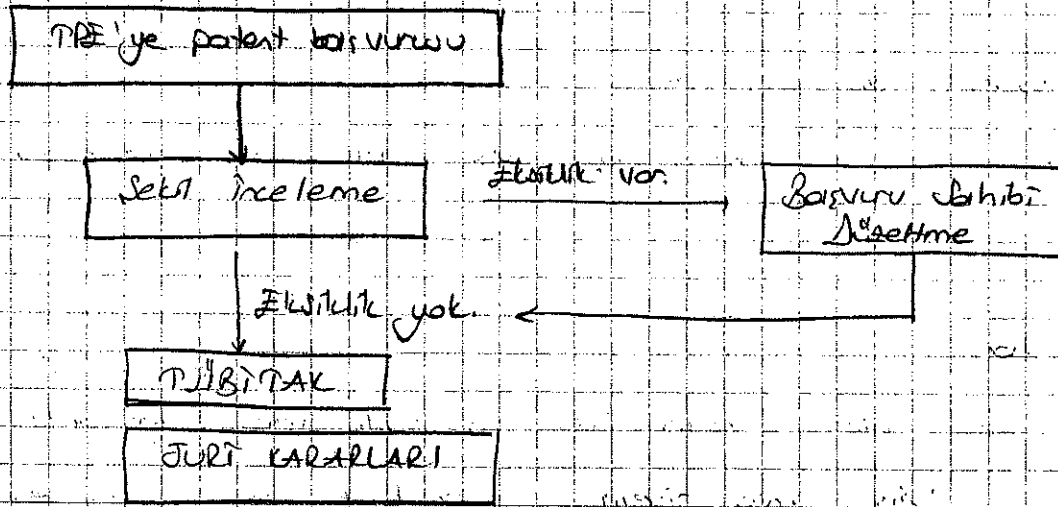 TPE'ye patent başvurusu
Şekil inceleme
Eksiklik var.
Başvuru Sahibi
Düzeltme
Eksiklik yok.
TÜBİTAK
JÜRİ KARARLARI